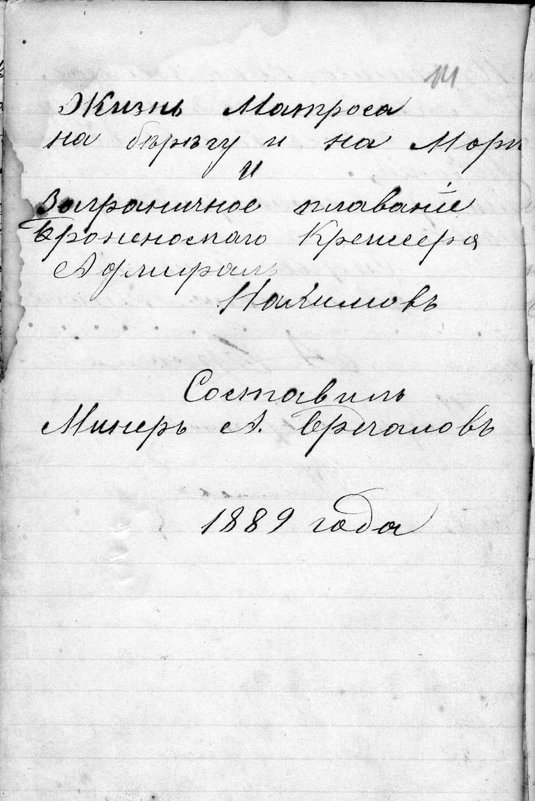 Жизнь Матроса
на берегу и на Мори
и
Заграничное плаваніе
Броненоснаго Крейсера
Адмиралъ
Нахимовъ
Составилъ
Минеръ А.
1889 года